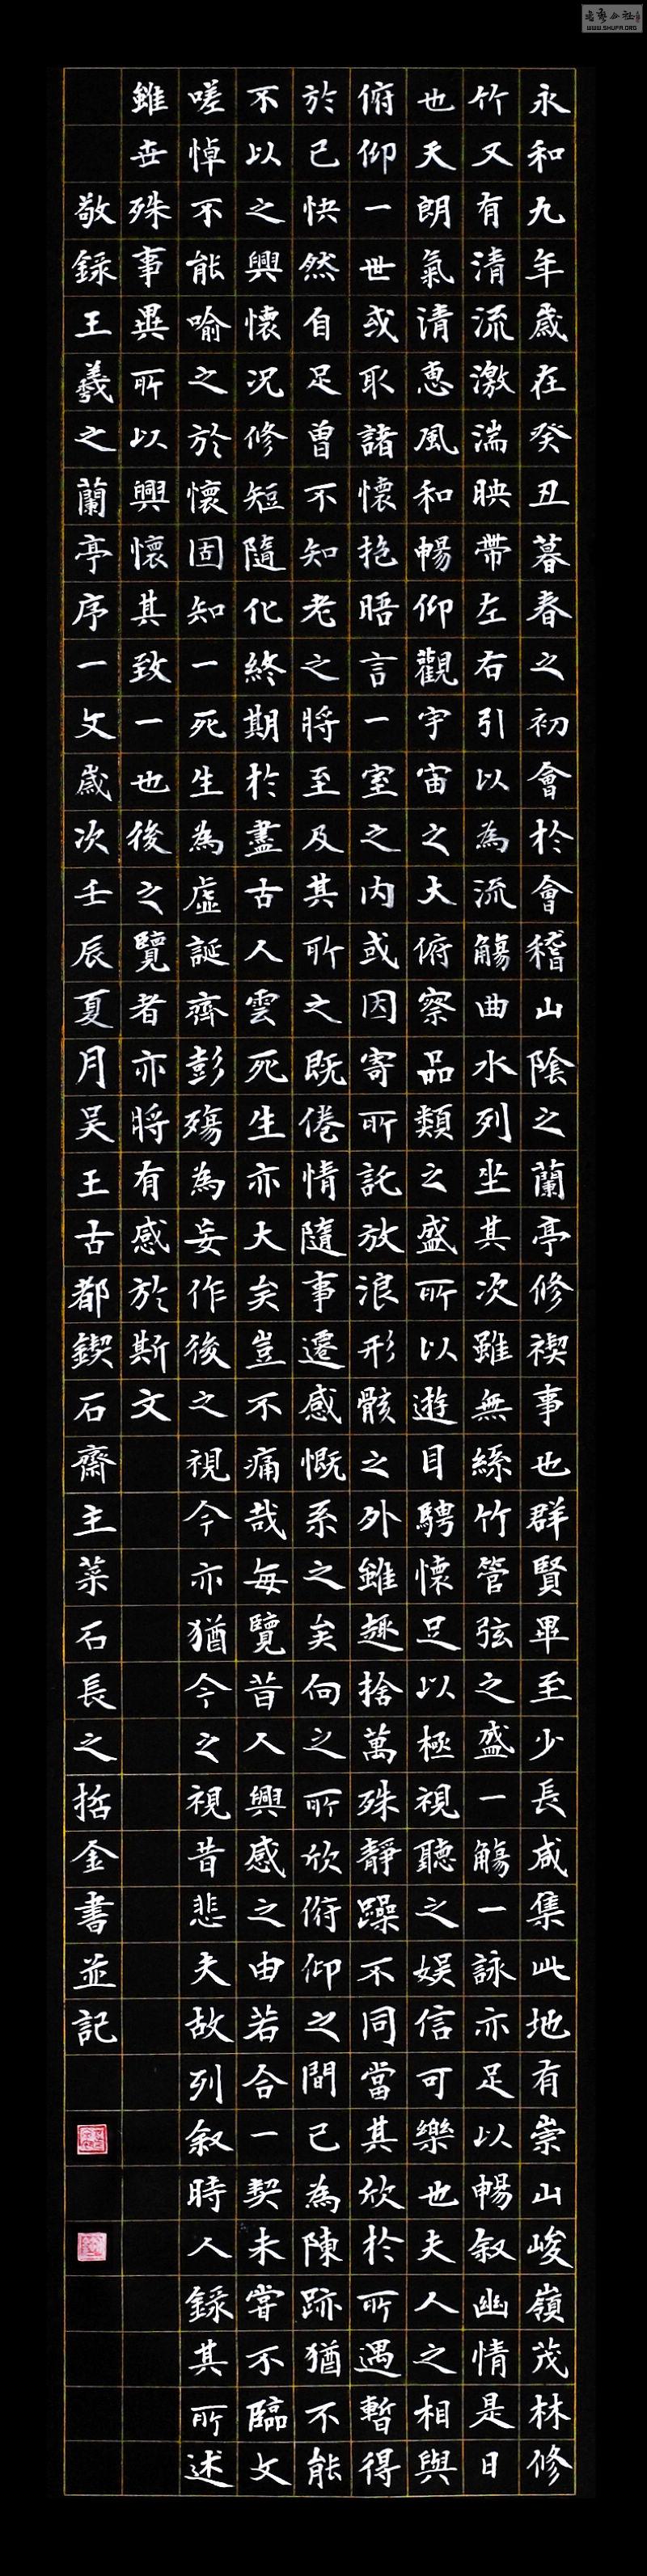 永和九年歲在癸丑暮春之初會於會稽山陰之蘭亭修禊事也群賢畢至少長咸集此地有崇山峻嶺茂林修
竹又有清流激湍映帶左右引以為流觴曲水列坐其次雖無絲竹管弦之盛一觴一詠亦足以暢叙幽情是日
也天朗氣清惠風和暢仰觀宇宙之大俯察品類之盛所以遊目騁懷足以極視聽之娛信可樂也夫人之相與
俯仰一世或取諸懷抱晤言一室之内或因寄所託放浪形骸之外雖趣捨萬殊靜躁不同當其欣於所遇暫得
於己快然自足曾不知老之將至及其所之既倦情隨事遷感慨系之矣向之所欣俯仰之間已為陳跡猶不能
不以之興懷况修短隨化終期於盡古人雲死生亦大矣豈不痛哉每覽昔人興感之由若合一契未嘗不臨文
嗟悼不能喻之於懷固知一死生為虛誕齊彭殤為妄作後之視今亦猶今之視昔悲夫故列叙時人錄其所述
雖世殊事異所以興懷其致一也後之覽者亦將有感於斯文
敬錄王羲之蘭亭序一文歲次壬辰夏月吴王古都鍥石齋主菜石長之括金書並記
WWW.SHUFA.ORG